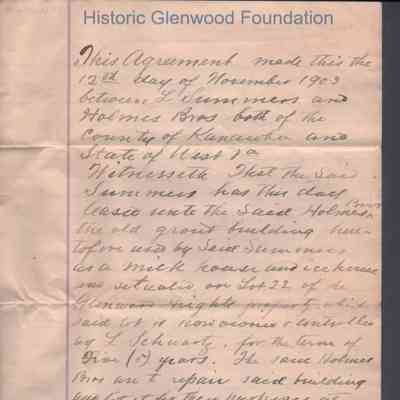 Historic Glenwood Foundation
This Agreement made this the
12th day of November 1903
between L Summers and
Holmes Bros both of the
County of Kanawha and
State of West Va
Witnesseth That the said
Summers has this day
leased unto the Said Holmes Bros
the old grout building here-
tofore used by Said Summers
as a milk house and ice house
and situated on Lot 22 of the
Glenwood Heights property which
said lot is now owned & controlled
by L Schwartz, for the term of
Five (5) years. The said Holmes
Bros are to repair said building